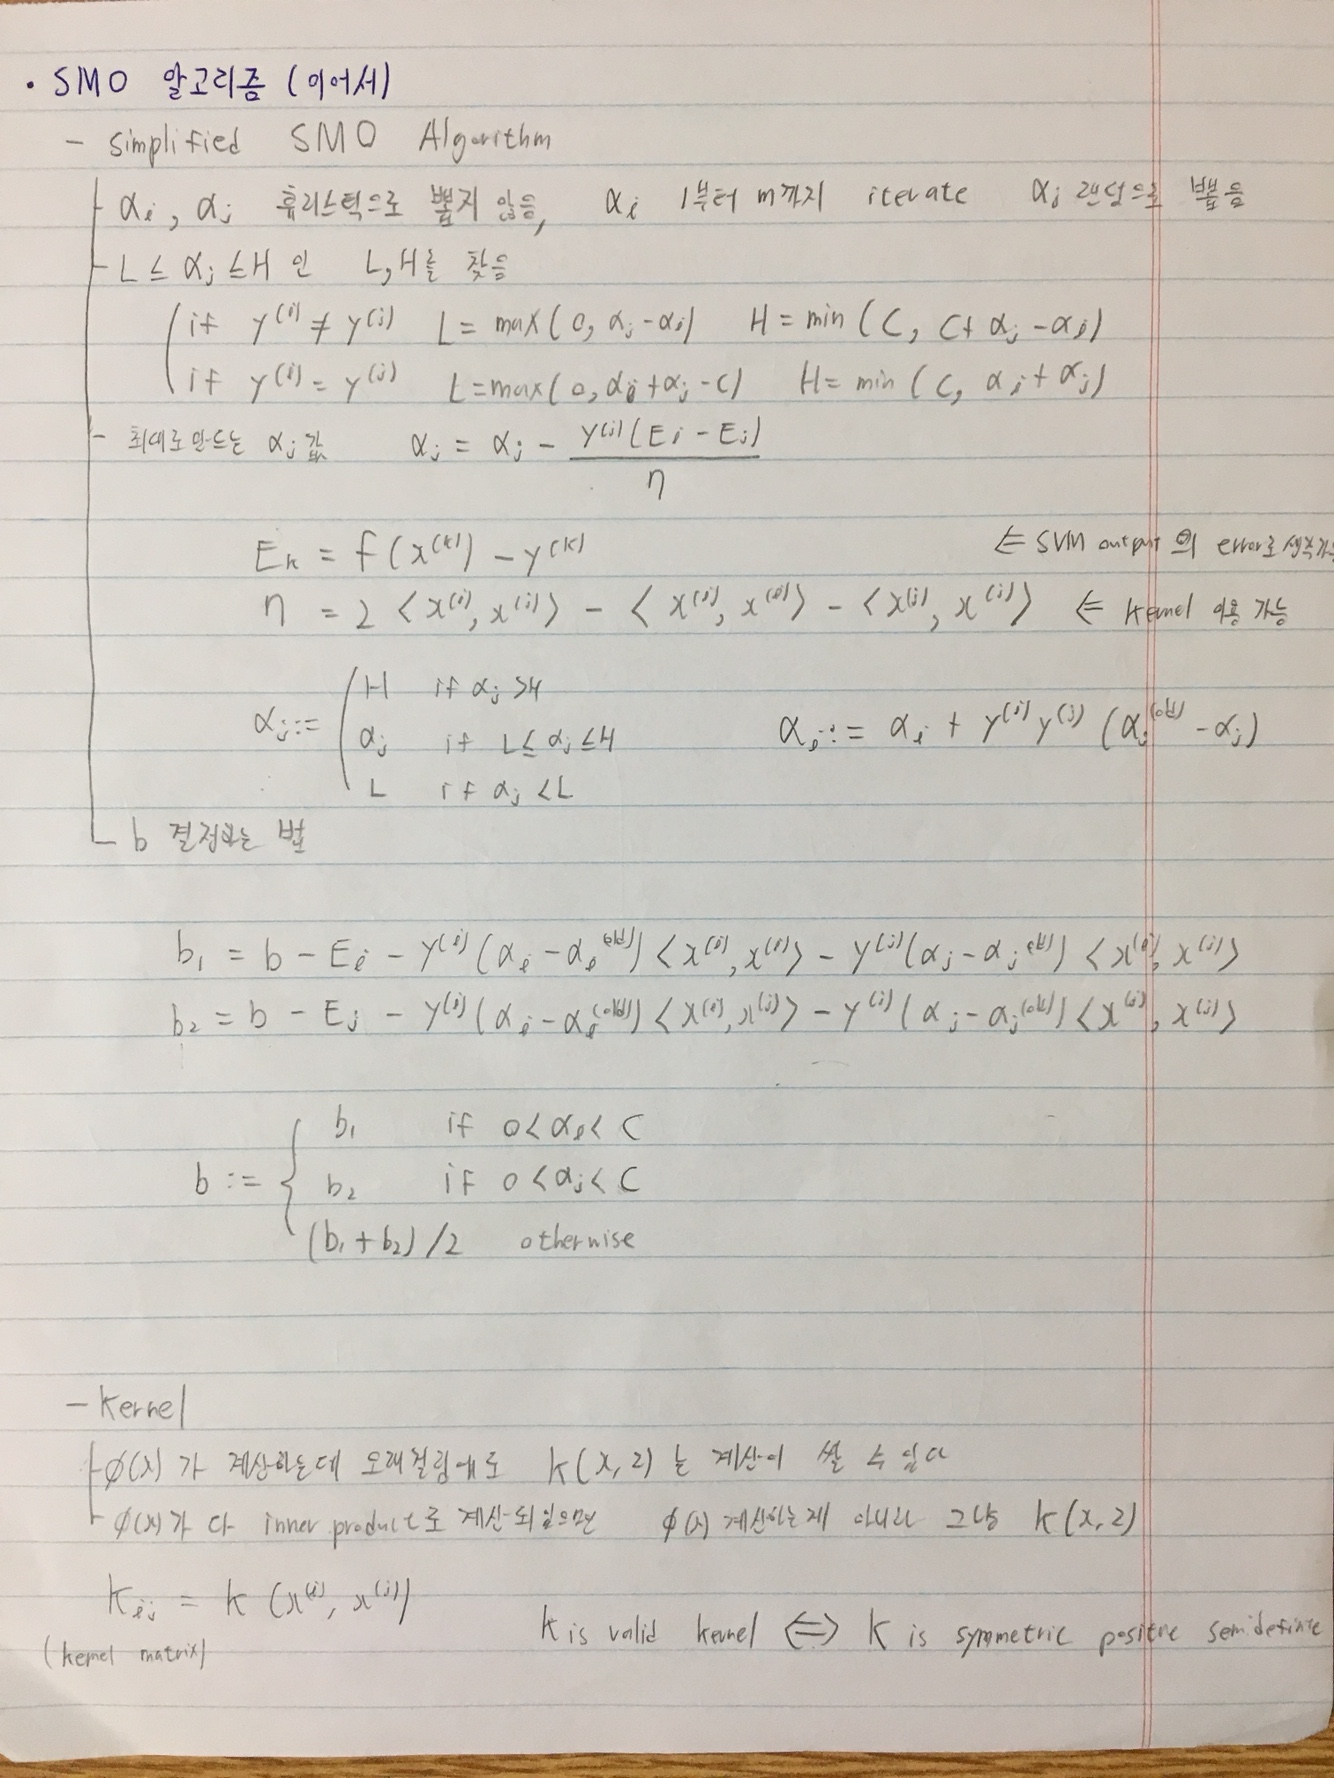 • SMO 알고리즘 (이어서)
- Simplified SMO Algorithm
αi, αj 휴리스틱으로 뽑지 않음, αi 1부터 m까지 iterate αj 랜덤으로 뽑음
L ≤ αj ≤ H 인 L, H를 찾음
if y^(i) ≠ y^(j) L = max(0, αj - αi) H = min(C, C + αj - αi)
if y^(i) = y^(j) L = max(0, αi + αj - C) H = min(C, αi + αj)
- 최대로 만드는 αj 값 αj = αj - y^(j)(Ei - Ej) / η
Ek = f(x^(k)) - y^(k) ⇐ SVM output의 error로 생각가능
η = 2<x^(i), x^(j)> - <x^(i), x^(i)> - <x^(j), x^(j)> ⇐ kernel 이용 가능
H if αj > H
αj := αj if L ≤ αj ≤ H αi := αi + y^(i)y^(j)(αj^(old) - αj)
L if αj < L
b 결정하는 법
b1 = b - Ei - y^(i)(αi - αi^(old))<x^(i), x^(i)> - y^(j)(αj - αj^(old))<x^(i), x^(j)>
b2 = b - Ej - y^(i)(αi - αi^(old))<x^(i), x^(j)> - y^(j)(αj - αj^(old))<x^(j), x^(j)>
b1 if 0 < αi < C
b := b2 if 0 < αj < C
(b1 + b2)/2 otherwise
- Kernel
φ(x)가 계산하는데 오래걸림에도 k(x, z)는 계산이 쌀 수 있다
φ(x)가 다 inner product로 계산되있으면 φ(x) 계산하는게 아니라 그냥 k(x, z)
Kij = k(x^(i), x^(j))
(kernel matrix) K is valid kernel ⇔ K is symmetric positive semidefinite